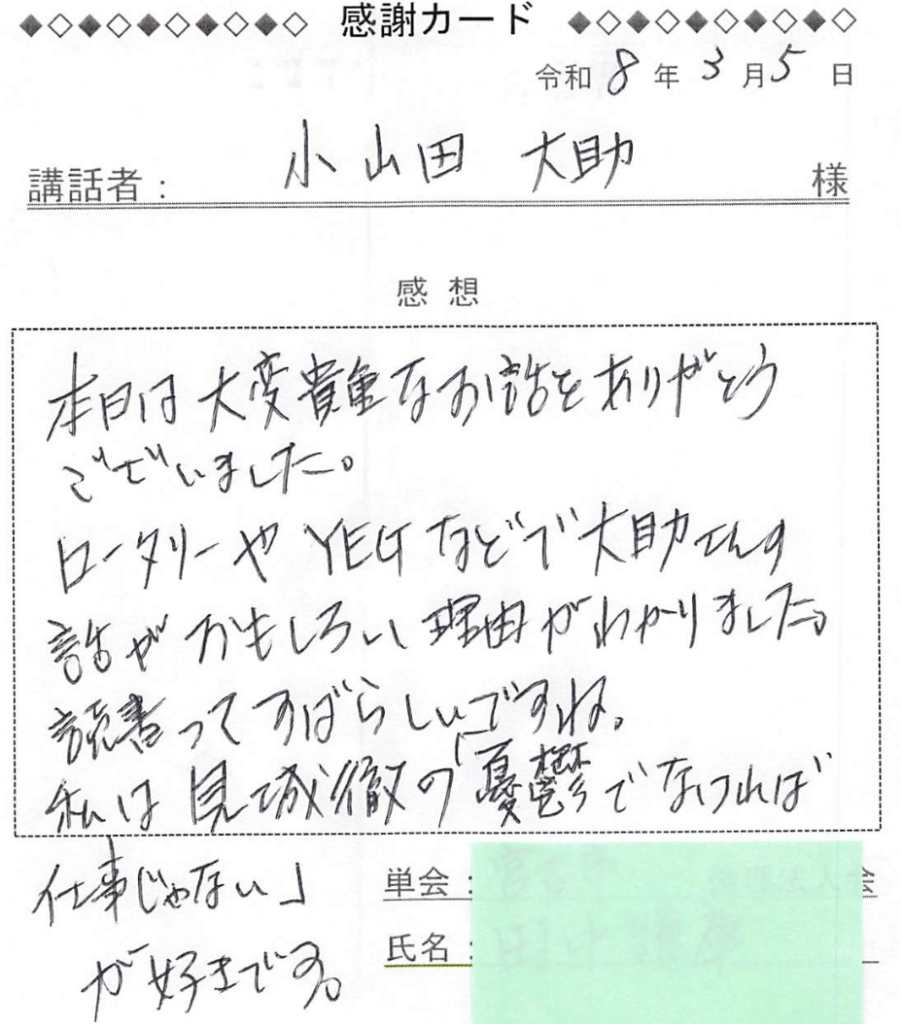 感謝カード
令和 8 年 3 月 5 日
講話者： 小山田 大助 様
感想
本日は大変貴重なお話をありがとう
ございました。
ロータリーや YEGなどで大助さんの
話がおもしろい理由がわかりました。
読書ってすばらしいですね。
私は見城徹の「憂鬱でなければ
仕事じゃない」
が好きです。
単会：
氏名：